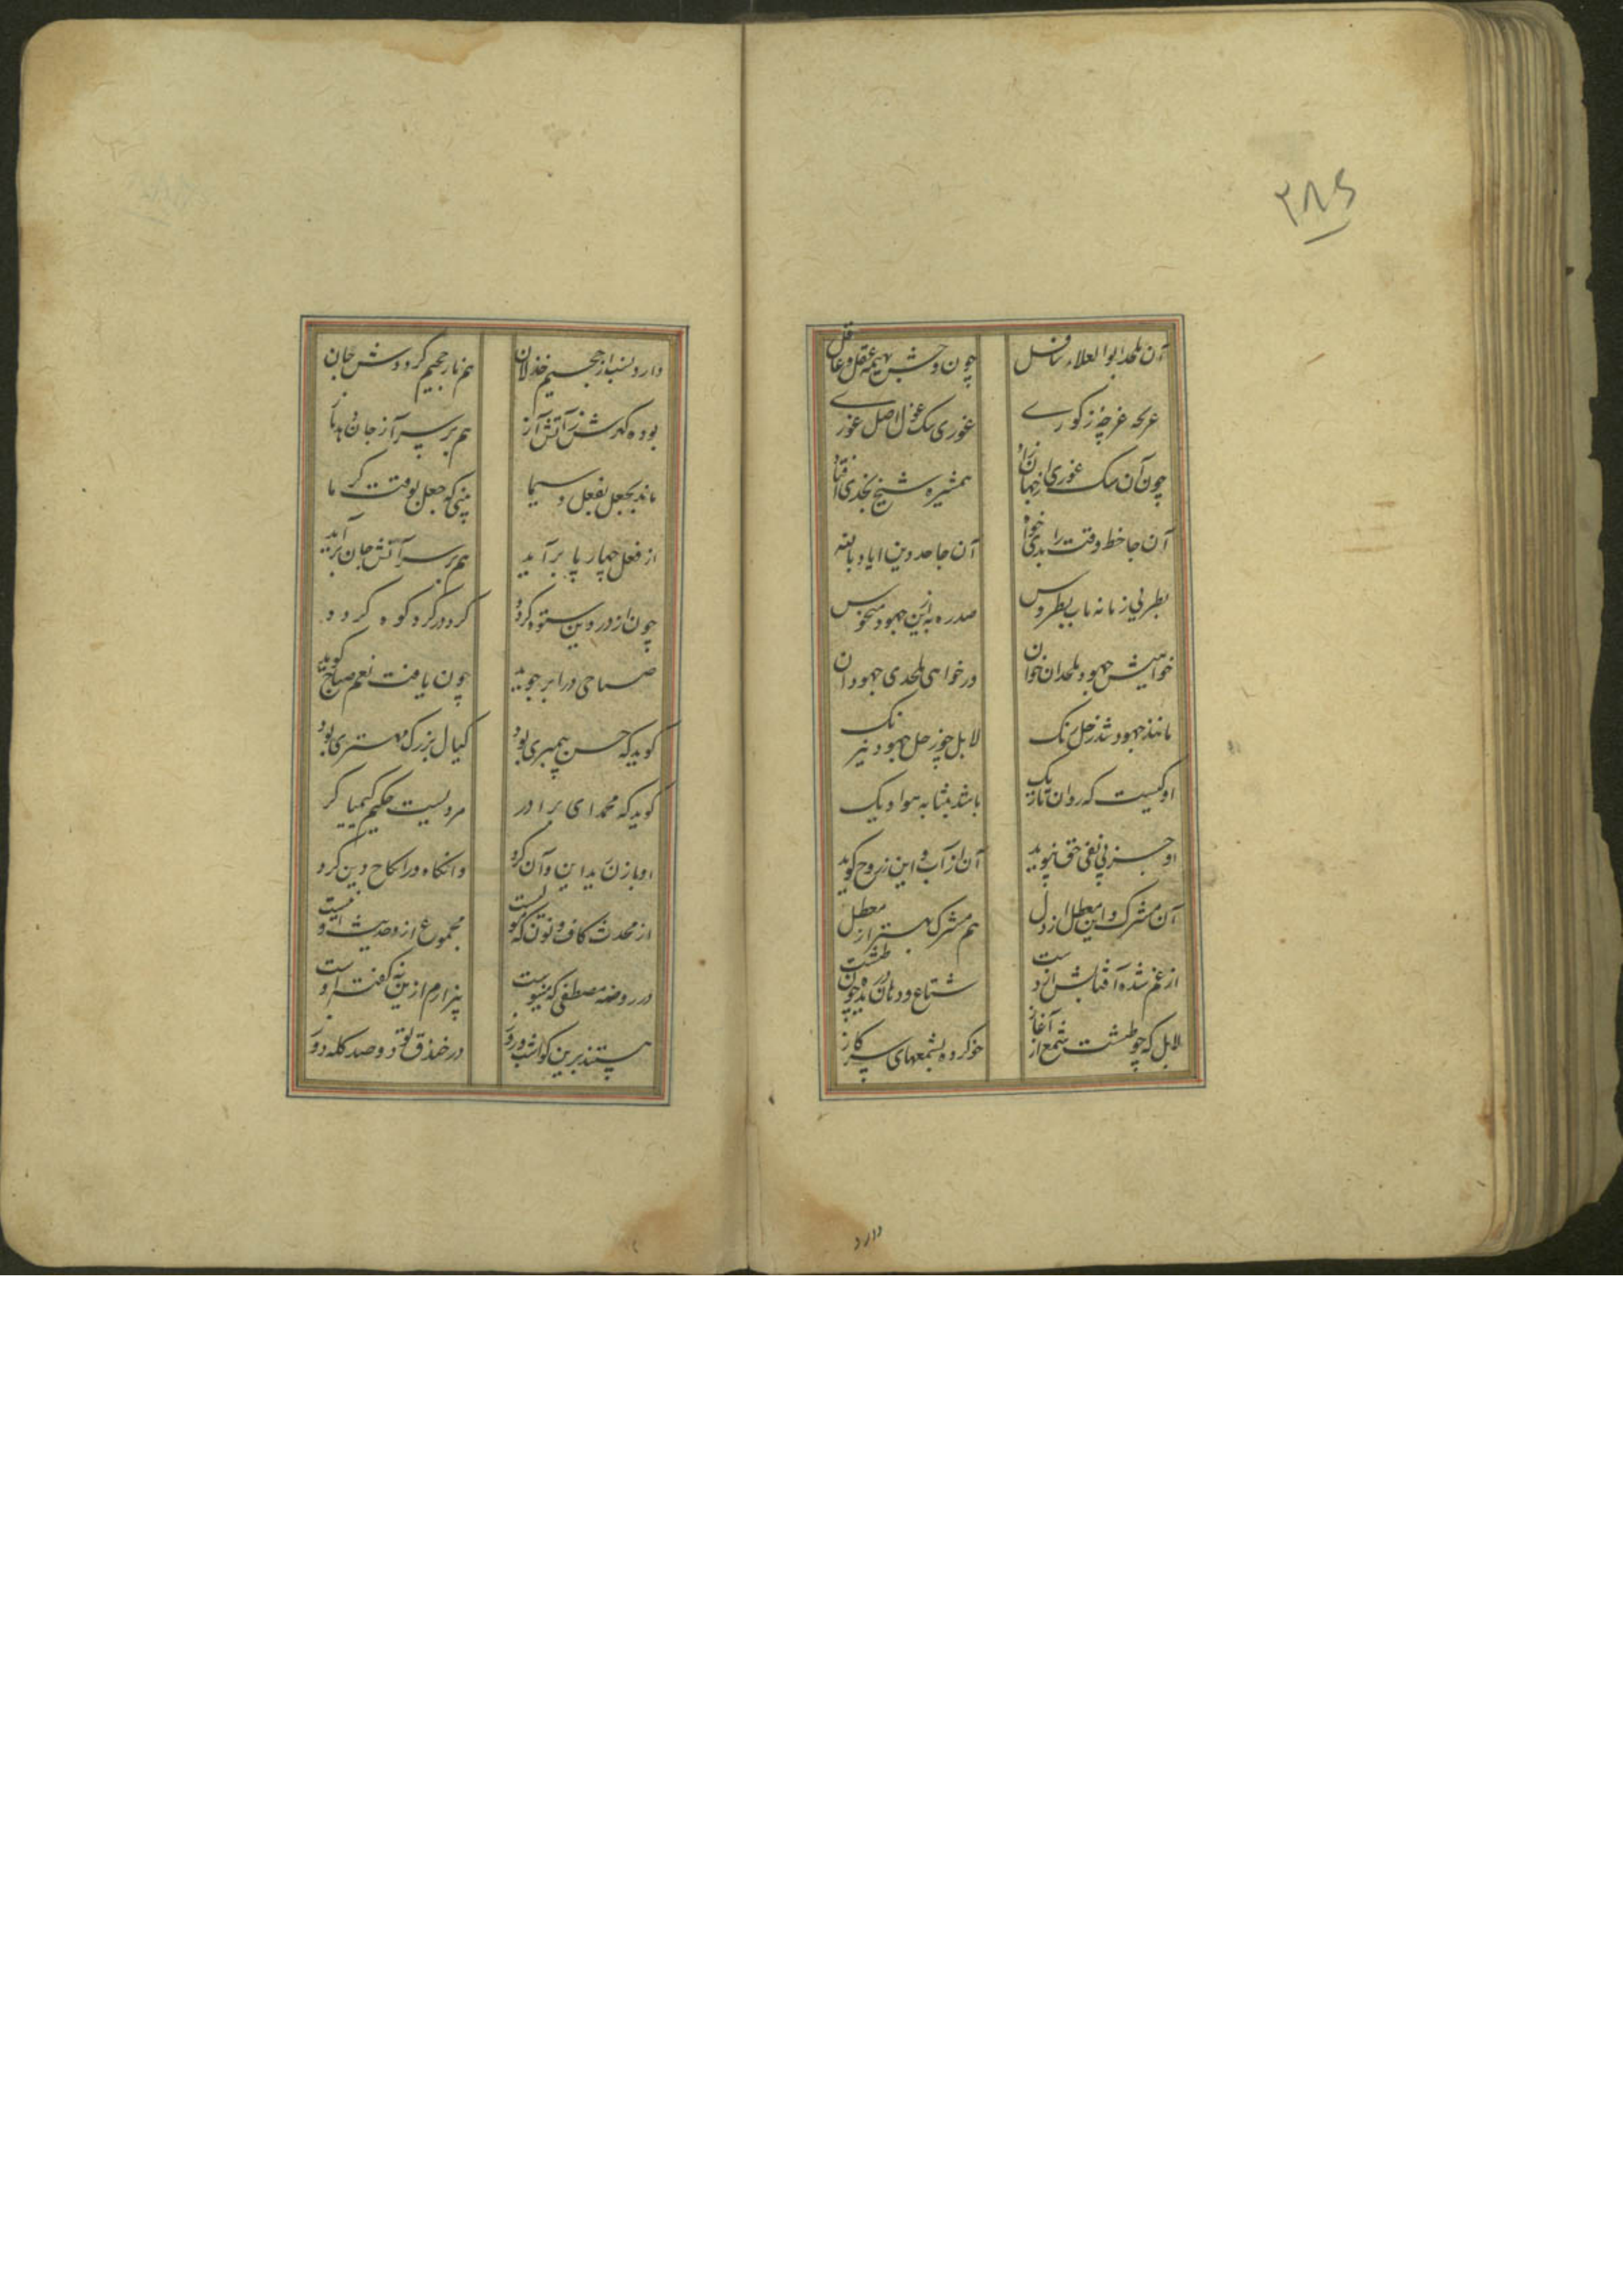 ۳۸۶
آن ملحد ابوالعلاء سافل
چون وحش بهیمه عقل و غافل
غرچه ز کوری
غوری سک غول اصل غوری
چون آن سک غوری از جهان زاد
همشیره شیخ نجدی افتاد
آن جاخط وقت را بدی خواه
آن جاحد دین ایا و بالله
بطریی زمانه باب بطروس
صدره به ازین جهود منحوس
خواهیش جهود ملحدان خوان
ور خواهی ملحدی جهودان
مانند جهود شد زحل رنک
لابل چو زحل جهود نیرنک
او کیست که روان تاریک
باشد بمثابه هوا ویک
او جز پی نفی حق نپوید
آن از آب و این ز روح کوید
آن مشرک و این معطل از دل
هم مشرک بهتر از معطل
از غم شده آفتابش از دست
شتاع و دهان دریده چون طشت
لابل که چو طشت شمع از آغاز
خو کرده بشمعهای سر کاز
دارد
دارد نسب از جحیم خذلان
هم نار جحیم کرددش جان
بوده کهرش ز آتش آز
هم بر سر آز جان دهد باز
ماند بجعل بفعل و سیما
بینی که جعل بوقت کرما
از فعل چهار پا بر آید
هم بر سر آتش جان بر آید
چون از در دین ستوه کردد
کرد در کرد کوه کردد
صباحی را بر جوید
چون یافت نعم صباح کوید
کوید که حسن پیمبری بود
کیال بزرک مهتری بود
کوید که محمد ای برادر
مردیست حکیم کیمیا کر
او باز ن یداین و آن کرد
وانکاه در انکاح دین کرد
از محدث کاف و نون که کولست
مجموع از و حدیث
در روضه مصطفی که مینوست
بیزارم ازین نه کفت است او
هستند برین کوا شب و روز
در خندق دو صد کله دوز